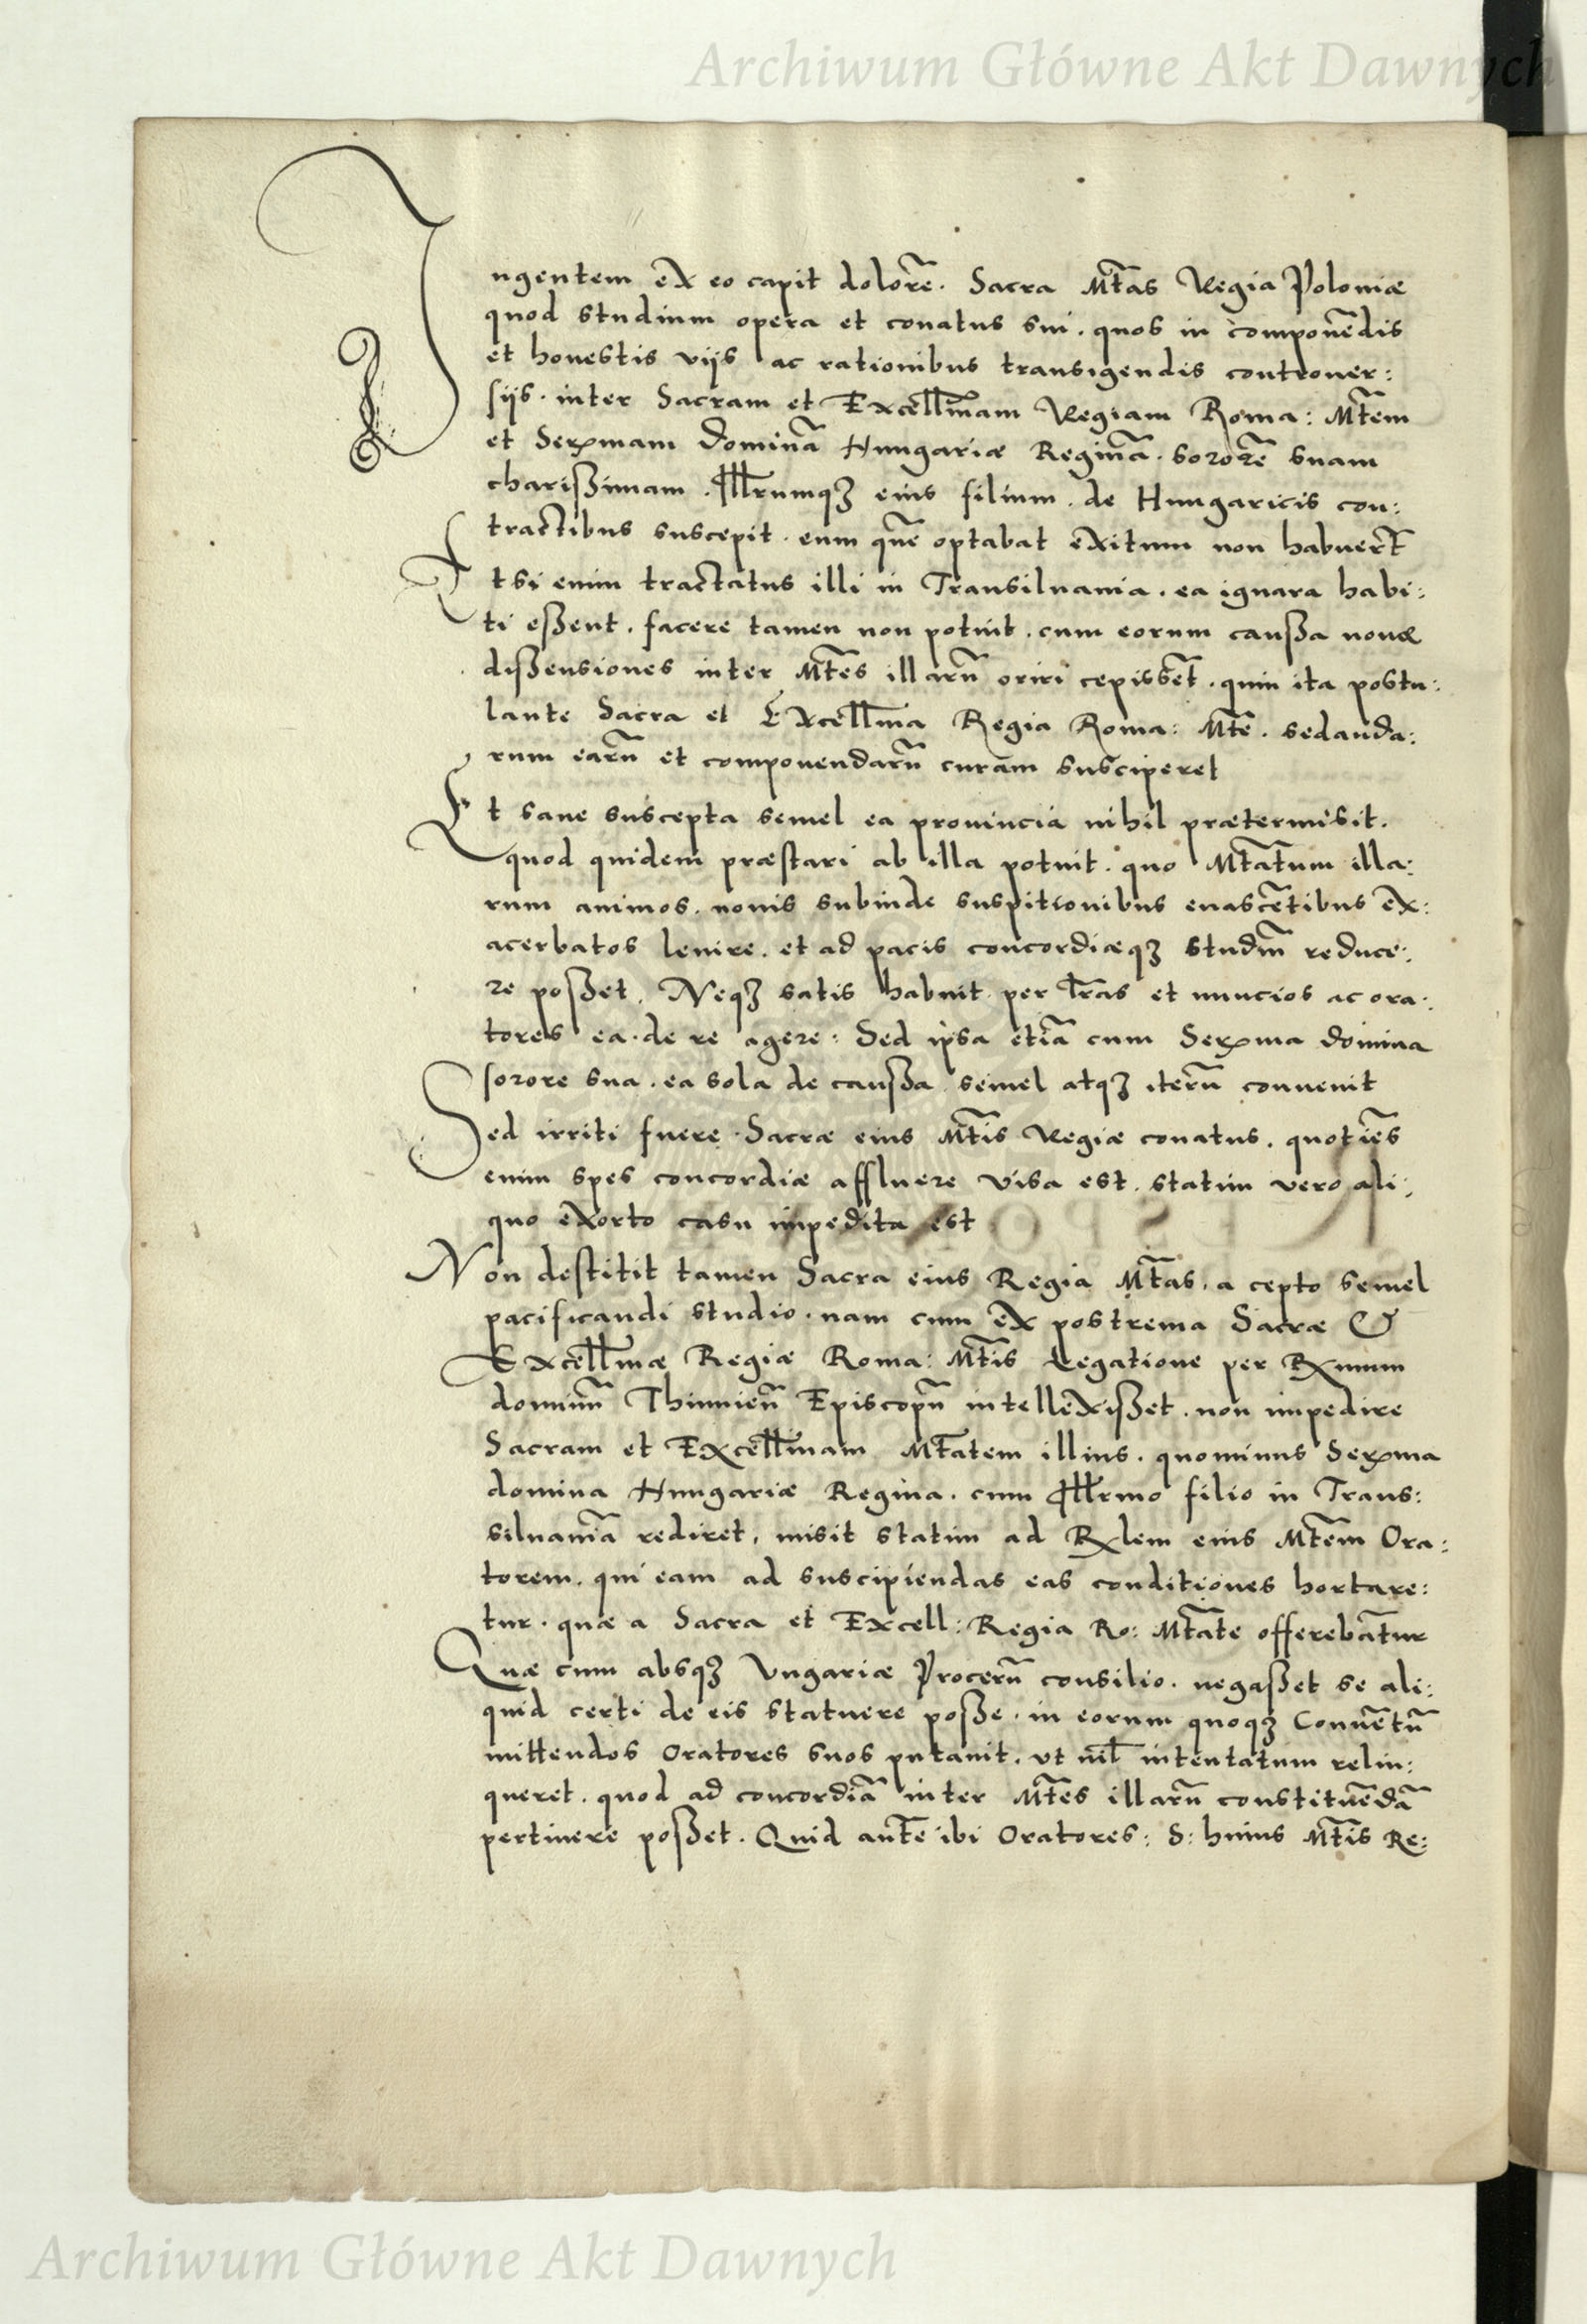 Archiwum Główne Akt Dawnych
Ingentem ex eo capit dolorē. Sacra Mt̄as Regia Poloniæ
quod studium opera et conatus sui. quos in componēdis
et honestis viis ac rationibus transigendis controuer:
siis. inter Sacram et Excellm̄am Regiam Roma: Mt̄em
et Serᵐmam dominā Hungariæ Reginā. sororē suam
charißimam. Illrumqꝫ eius filium. de Hungaricis con:
tractibus suscepit. eum quē optabat exitum non habuert̄
Etsi enim tractatus illi in Transiluania. ea ignara habi:
ti eßent. facere tamen non potuit. cum eorum caußa nouæ
dißensiones inter Mt̄es illarū oriri cepissēt. quin ita postu:
lante Sacra et Excellm̄a Regia Roma: Mt̄e. sedanda:
rum earū et componendarū curam susciperet
Et sane suscepta semel ea prouincia nihil prætermisit.
quod quidem præstari ab illa potuit. quo Mt̄atum illa:
rum animos. nouis subinde suspitionibus enascētibus ex:
acerbatos lenire. et ad pacis concordiæqꝫ studiū reduce:
re poßet. Neqꝫ satis habuit per lr̄as et nuncios ac ora:
tores ea. de re agere: Sed ipsa etiā cum Serᵐma domina
sorore sua. ea sola de caußa semel atqꝫ iterū conuenit
Sed irriti fuere. Sacræ eius Mt̄is Regiæ conatus. quoties
enim spes concordiæ affluere visa est. statim vero ali:
quo exorto casu impedita est
Non destitit tamen Sacra eius Regia Mt̄as. a cepto semel
pacificandi studio. nam cum ex postrema Sacræ &
Excellm̄æ Regiæ Roma: Mt̄is Legatione per Rxmum
dominū Thinnieñ Episcopū intellexißet. non impedire
Sacram et Excellm̄am Mt̄atem illius. quominus Serᵐma
domina Hungariæ Regina. cum Illrmo filio in Trans:
siluaniā rediret, misit statim ad Rxlem eius Mt̄em Ora:
torem. qui eam ad suscipiendas eas conditiones hortare:
tur. quæ a Sacra et Excell: Regia Ro: Mt̄ate offerebātur
Quæ cum absqꝫ Vngariæ Procerū consilio. negaßet se ali:
quid certi de eis statuere poße. in eorum quoqꝫ Conuētū
mittendos Oratores suos putauit. vt nil̄ intentatum relin:
queret. quod ad concordiā inter Mt̄es illarū constituēdā
pertinere poßet. Quid aut̄e ibi Oratores: S: huius Mt̄is Re:
Archiwum Główne Akt Dawnych